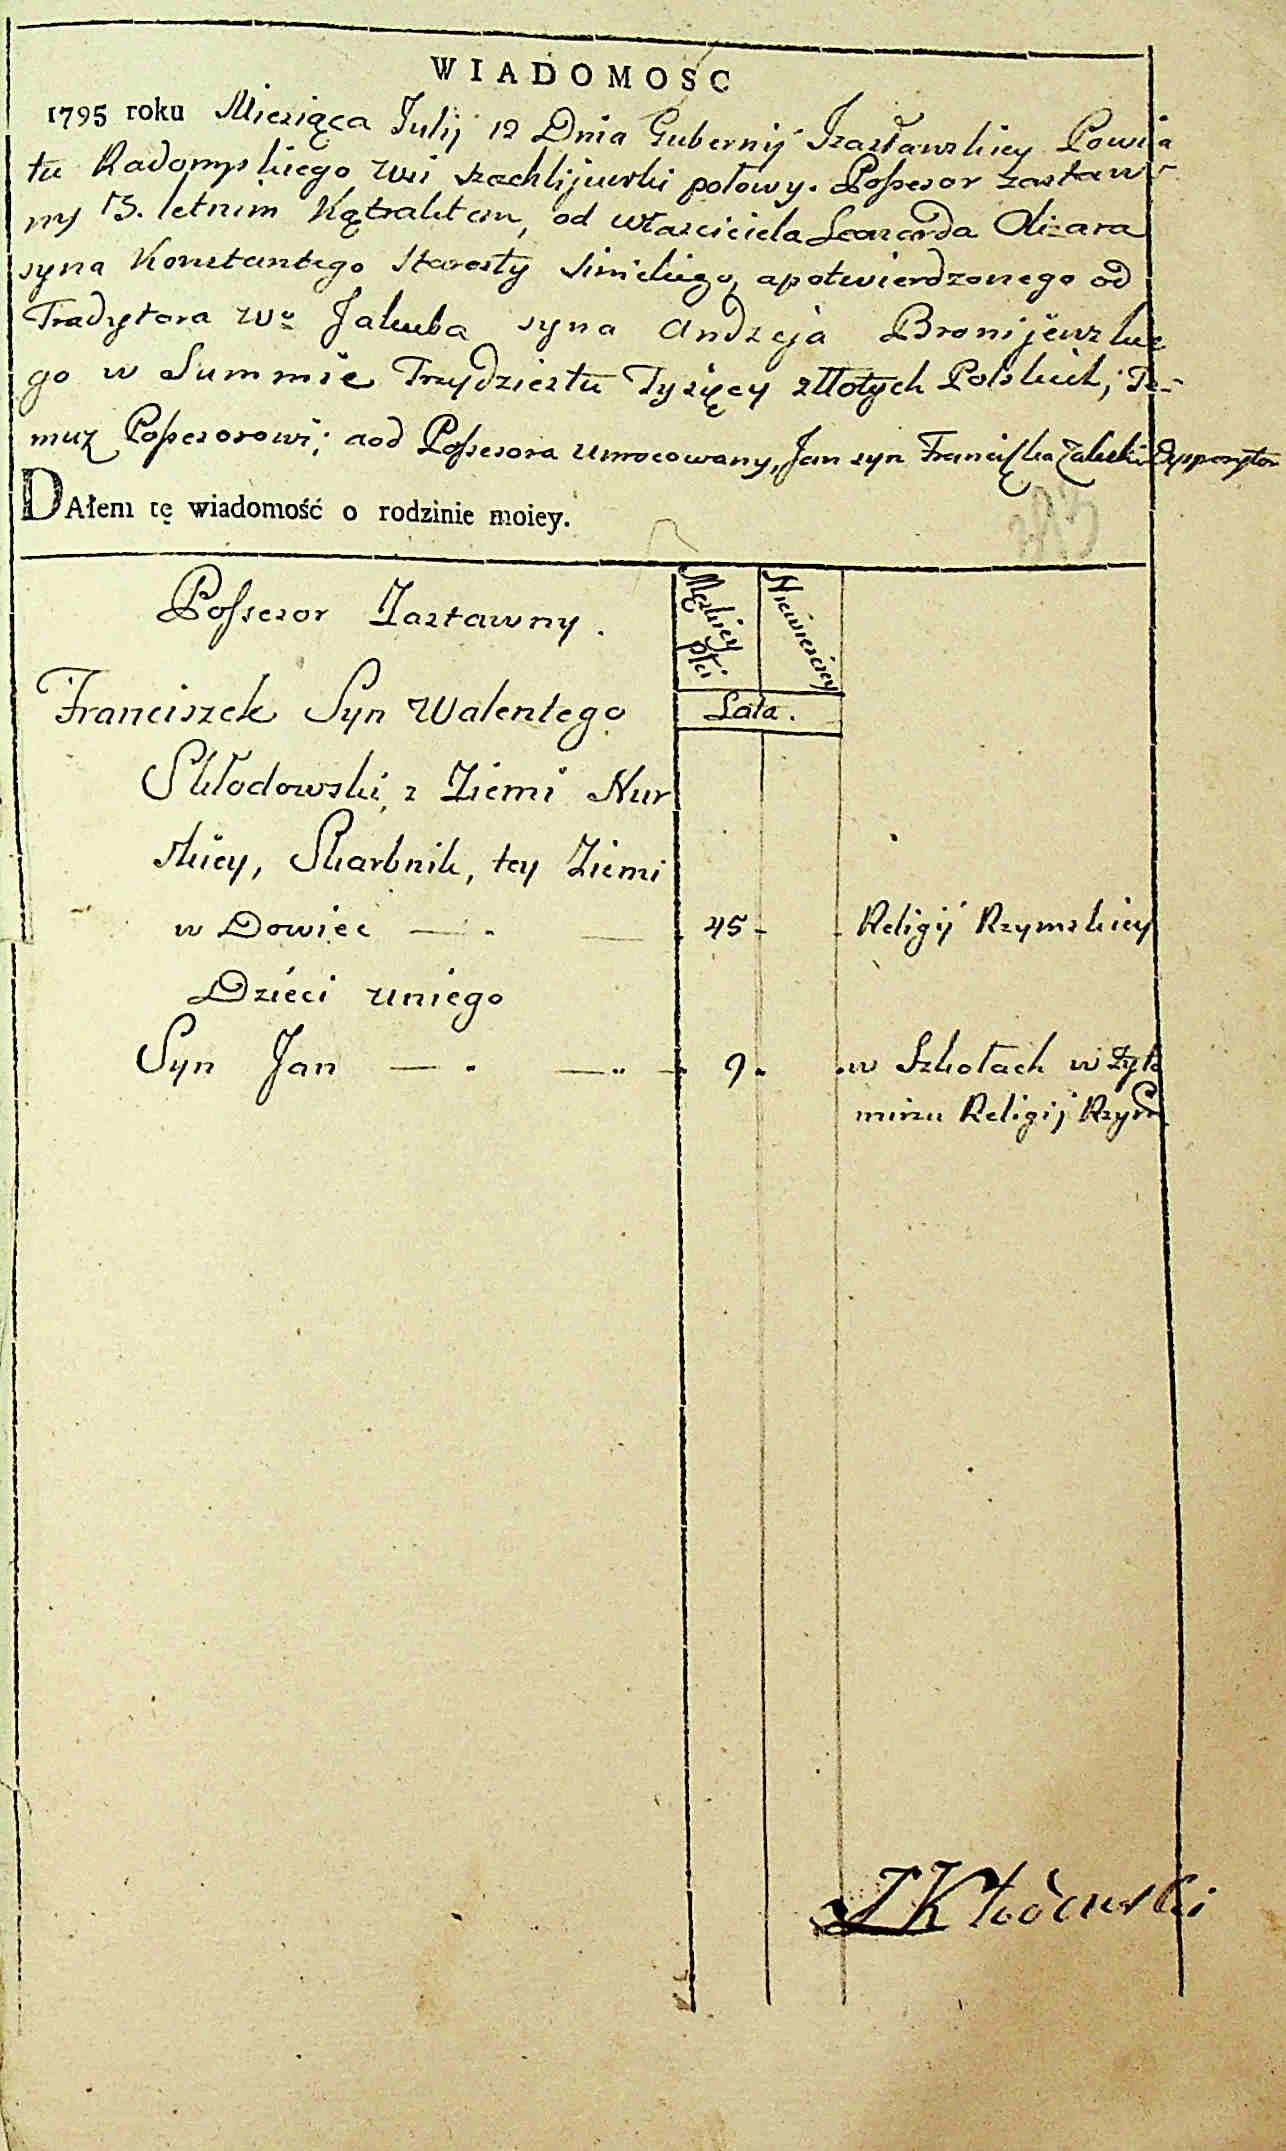 WIADOMOSC
1795 roku Miesiąca Julij 12 Dnia Gubernij Izasławskiey Powia
tu Radomyskiego wsi połowy. Possesor zastaw
ny 3. letnim Kątraktem, od własciciela Leonarda Olizara
syna Konstantego Starosty apotwierdzonego od
Tradytora Wo Jakuba syna Andrzeja Bronijewskie
go w Summie Trzydziestu Tysięcy złłotych Polskich, Te-
muz Possesorowi; aod Possesora umocowany, Jan syn Franciszka Zaleski Dysponytor
DAłem tę wiadomość o rodzinie moiey.
Possesor Zastawny.
Męskiey płci
Niewiesciey
Lata.
Franciszek Syn Walentego
Skłodowski, z Ziemi Nur
skiey, Skarbnik, tey Ziemi
w Dowiec — - — 45 - - Religij Rzymskiey
Dzieci uniego
Syn Jan — - — .. - 9. .w Szkołach w Zyto
mirzu Religij Rzym